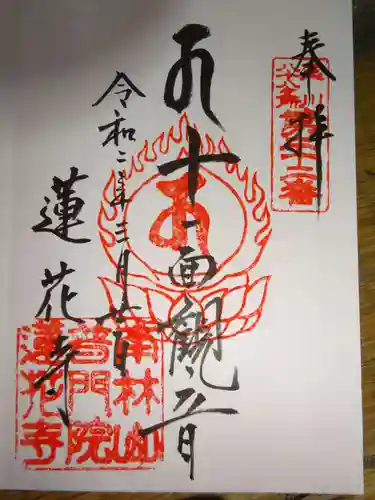 奉拝
十一面観音
令和二年三月廿日
蓮花寺
南林山
普門院
蓮花寺